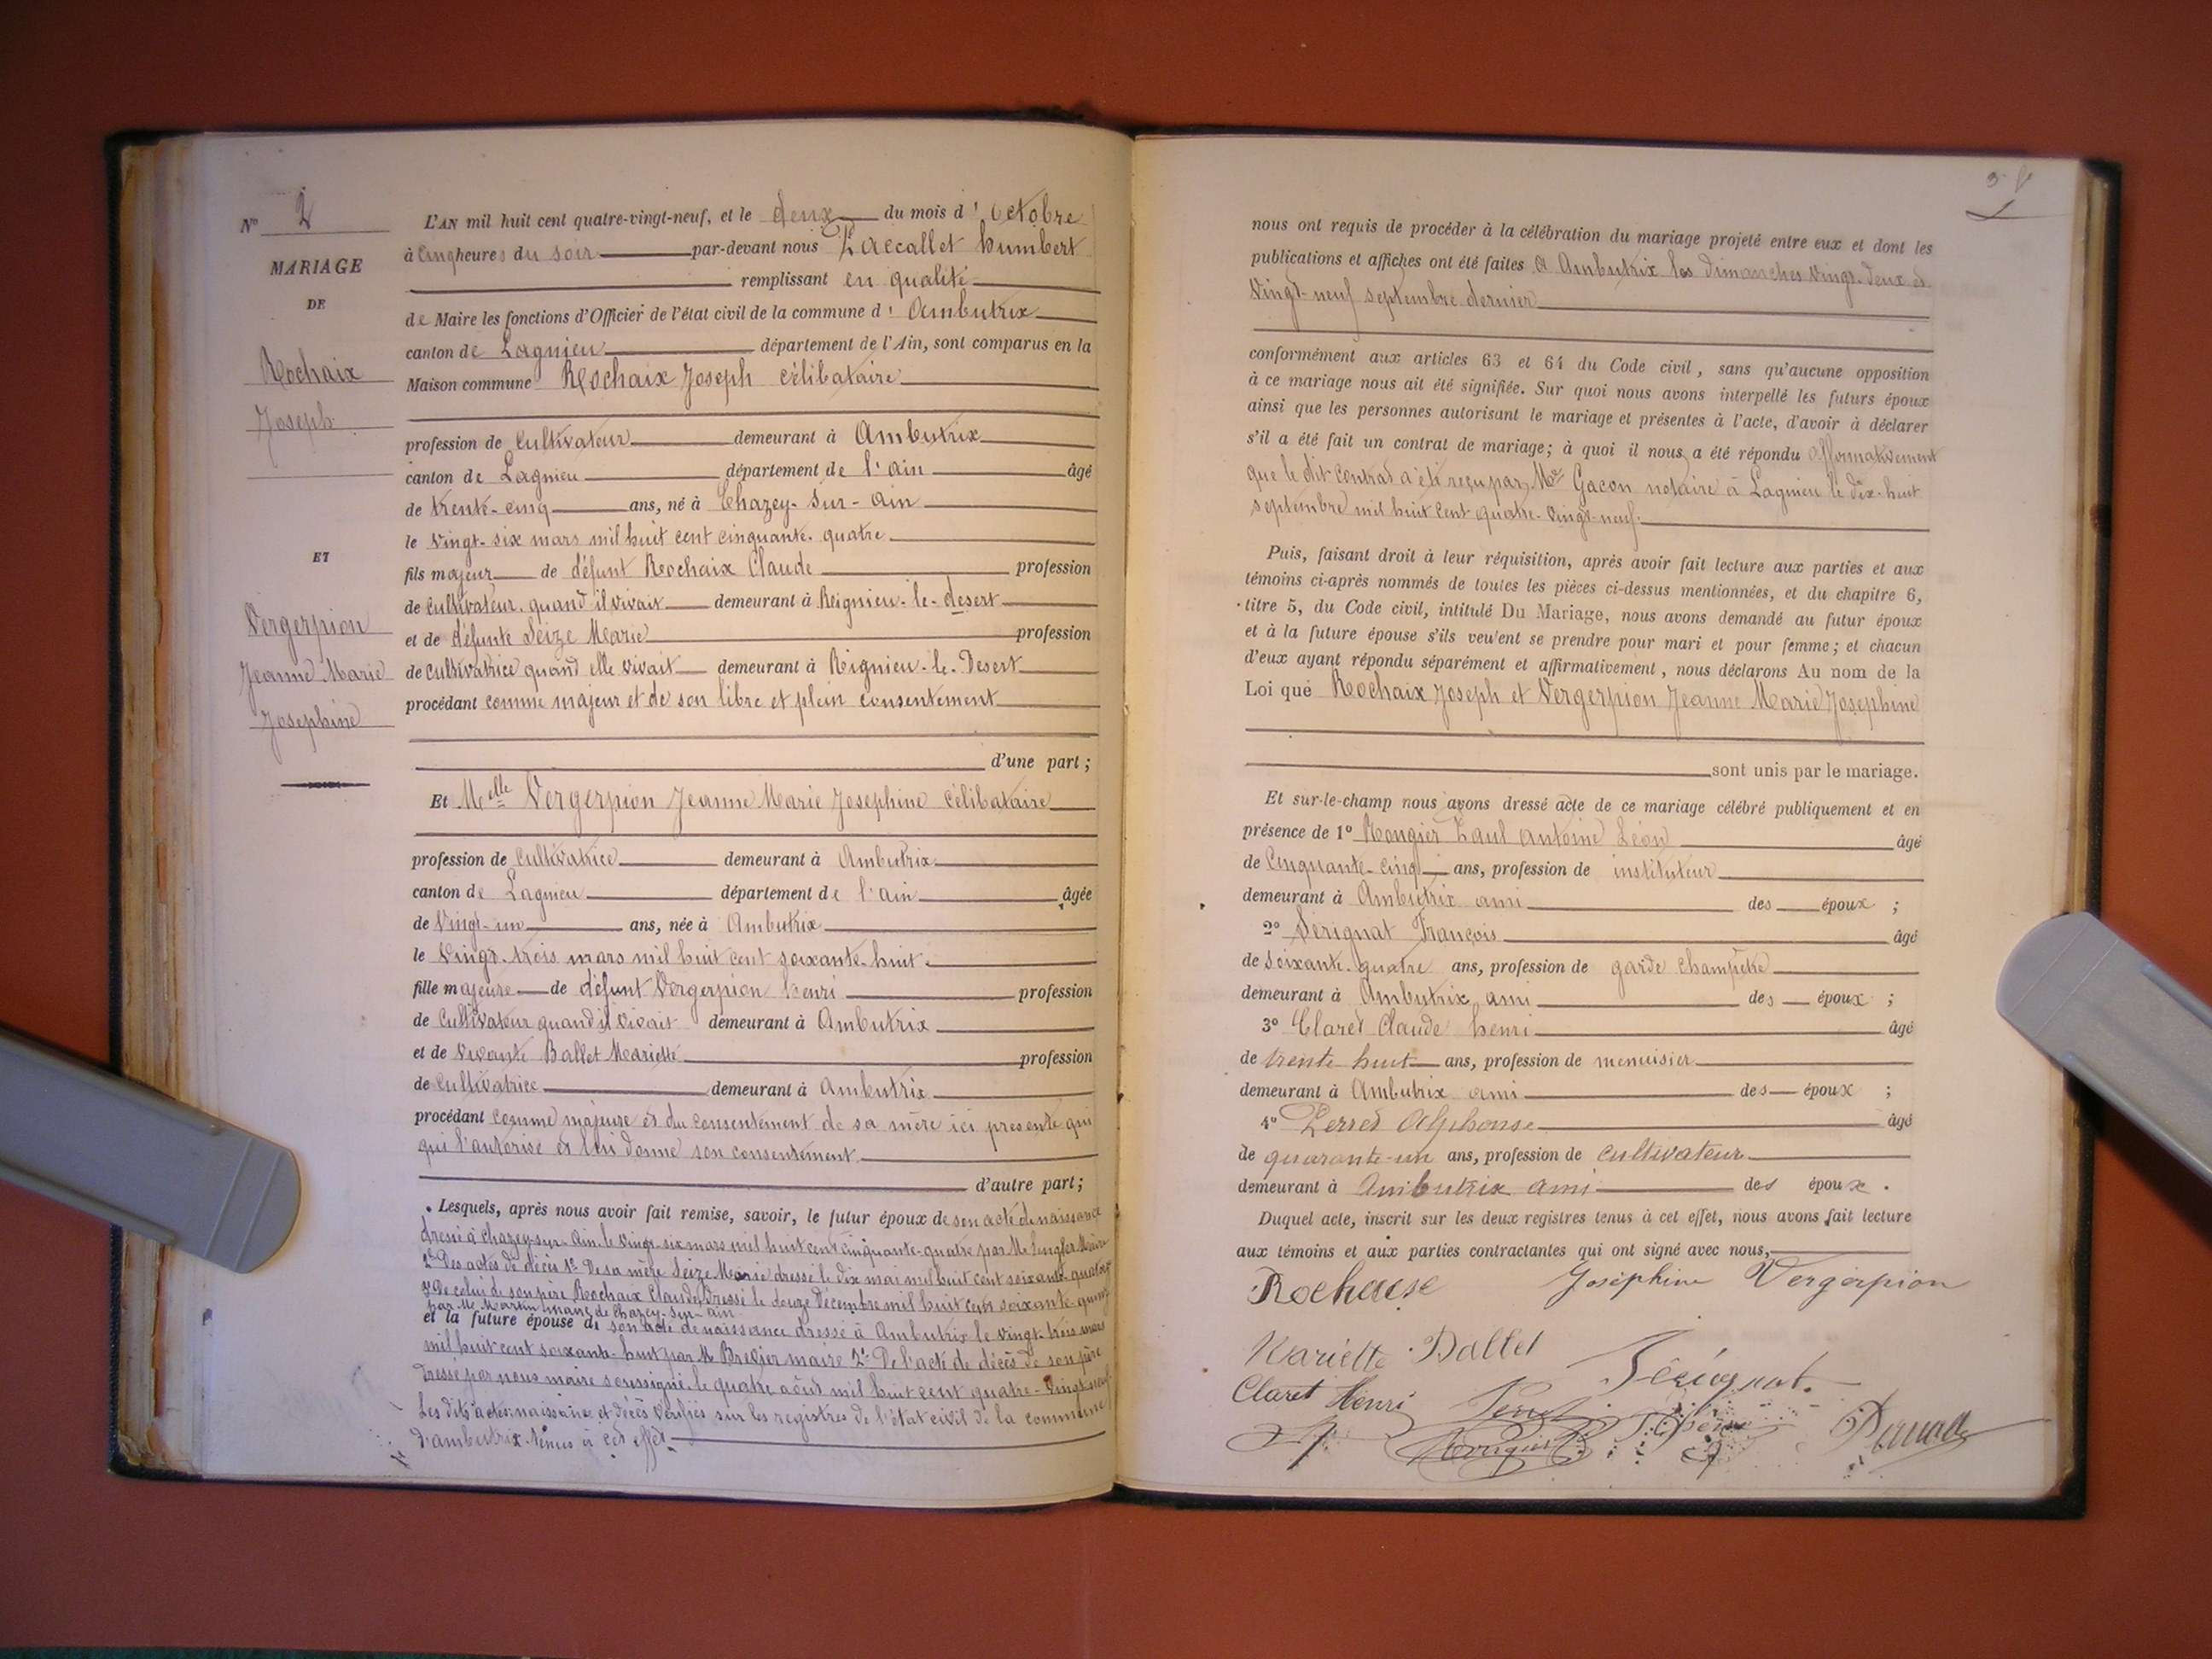 N° 2
MARIAGE
DE
Rochaix
Joseph
ET
Vergerpion
Jeanne Marie
Josephine
L'AN mil huit cent quatre-vingt-neuf, et le deux du mois d' octobre
à cinq heures du soir par-devant nous Paccallet humbert
remplissant en qualité
de Maire les fonctions d'Officier de l'état civil de la commune d' Ambutrix
canton de Lagnieu département de l'Ain, sont comparus en la
Maison commune Rochaix Joseph célibataire
profession de cultivateur demeurant à Ambutrix
canton de Lagnieu département de l'ain âgé
de trente-cinq ans, né à Chazey-sur-ain
le vingt-six mars mil huit cent cinquante-quatre
fils majeur de défunt Rochaix Claude profession
de cultivateur quand il vivait demeurant à Reignieu-le-desert
et de défunte Seize Marie profession
de cultivatrice quand elle vivait demeurant à Rignieu-le-Desert
procédant comme majeur et de son libre et plein consentement
d'une part ;
Et Melle Vergerpion Jeanne Marie Josephine célibataire
profession de cultivatrice demeurant à Ambutrix
canton de Lagnieu département de l'ain âgée
de vingt-un ans, née à Ambutrix
le vingt-trois mars mil huit cent soixante-huit
fille majeure de défunt Vergerpion henri profession
de cultivateur quand il vivait demeurant à Ambutrix
et de vivante Ballet Mariette profession
de cultivatrice demeurant à Ambutrix
procédant comme majeure et du consentement de sa mère ici presente qui
qui l'autorise et lui donne son consentement
d'autre part ;
Lesquels, après nous avoir fait remise, savoir, le futur époux de son acte de naissance
dressé à Chazey-sur-Ain le vingt-six mars mil huit cent cinquante-quatre par M. Maire
2° Des actes de décès 1° De sa mère Seize Marie dressé le dix mai mil huit cent soixante-quatorze
De celui de son père Rochaix Claude dressé le douze Décembre mil huit cent soixante-quinze
par Me Martin maire de Chazey-sur-ain
et la future épouse de son acte de naissance dressé à Ambutrix le vingt-trois mars
mil huit cent soixante-huit par M. maire 2° De l'acte de décès de son père
Dressé par nous maire soussigné le quatre août mil huit cent quatre-vingt-neuf
Les dits actes naissance et décès vérifiés sur les registres de l'état civil de la commune
d'ambutrix tenus à cet effet
nous ont requis de procéder à la célébration du mariage projeté entre eux et dont les
publications et affiches ont été faites à Ambutrix les dimanches vingt-deux et
vingt-neuf septembre dernier
conformément aux articles 63 et 64 du Code civil, sans qu'aucune opposition
à ce mariage nous ait été signifiée. Sur quoi nous avons interpellé les futurs époux
ainsi que les personnes autorisant le mariage et présentes à l'acte, d'avoir à déclarer
s'il a été fait un contrat de mariage; à quoi il nous a été répondu affirmativement
que le dit contrat a été reçu par Me Gacon notaire à Lagnieu le dix-huit
septembre mil huit cent quatre-vingt-neuf.
Puis, faisant droit à leur réquisition, après avoir fait lecture aux parties et aux
témoins ci-après nommés de toutes les pièces ci-dessus mentionnées, et du chapitre 6,
titre 5, du Code civil, intitulé Du Mariage, nous avons demandé au futur époux
et à la future épouse s'ils veulent se prendre pour mari et pour femme; et chacun
d'eux ayant répondu séparément et affirmativement, nous déclarons Au nom de la
Loi que Rochaix Joseph et Vergerpion Jeanne Marie Josephine
sont unis par le mariage.
Et sur-le-champ nous avons dressé acte de ce mariage célébré publiquement et en
présence de 1° Rougier Paul antoine Léon âgé
de cinquante-cinq ans, profession de instituteur
demeurant à Ambutrix ami des époux ;
2° Sérignat François âgé
de soixante-quatre ans, profession de garde champêtre
demeurant à Ambutrix ami des époux ;
3° Claret Claude henri âgé
de trente huit ans, profession de menuisier
demeurant à Ambutrix ami des époux ;
4° Perret Alphonse âgé
de quarante-un ans, profession de cultivateur
demeurant à Ambutrix ami des époux .
Duquel acte, inscrit sur les deux registres tenus à cet effet, nous avons fait lecture
aux témoins et aux parties contractantes qui ont signé avec nous,
Rochaise Joséphine Vergerpion
Mariette Ballet
Sérignat.
Claret Henri Perret